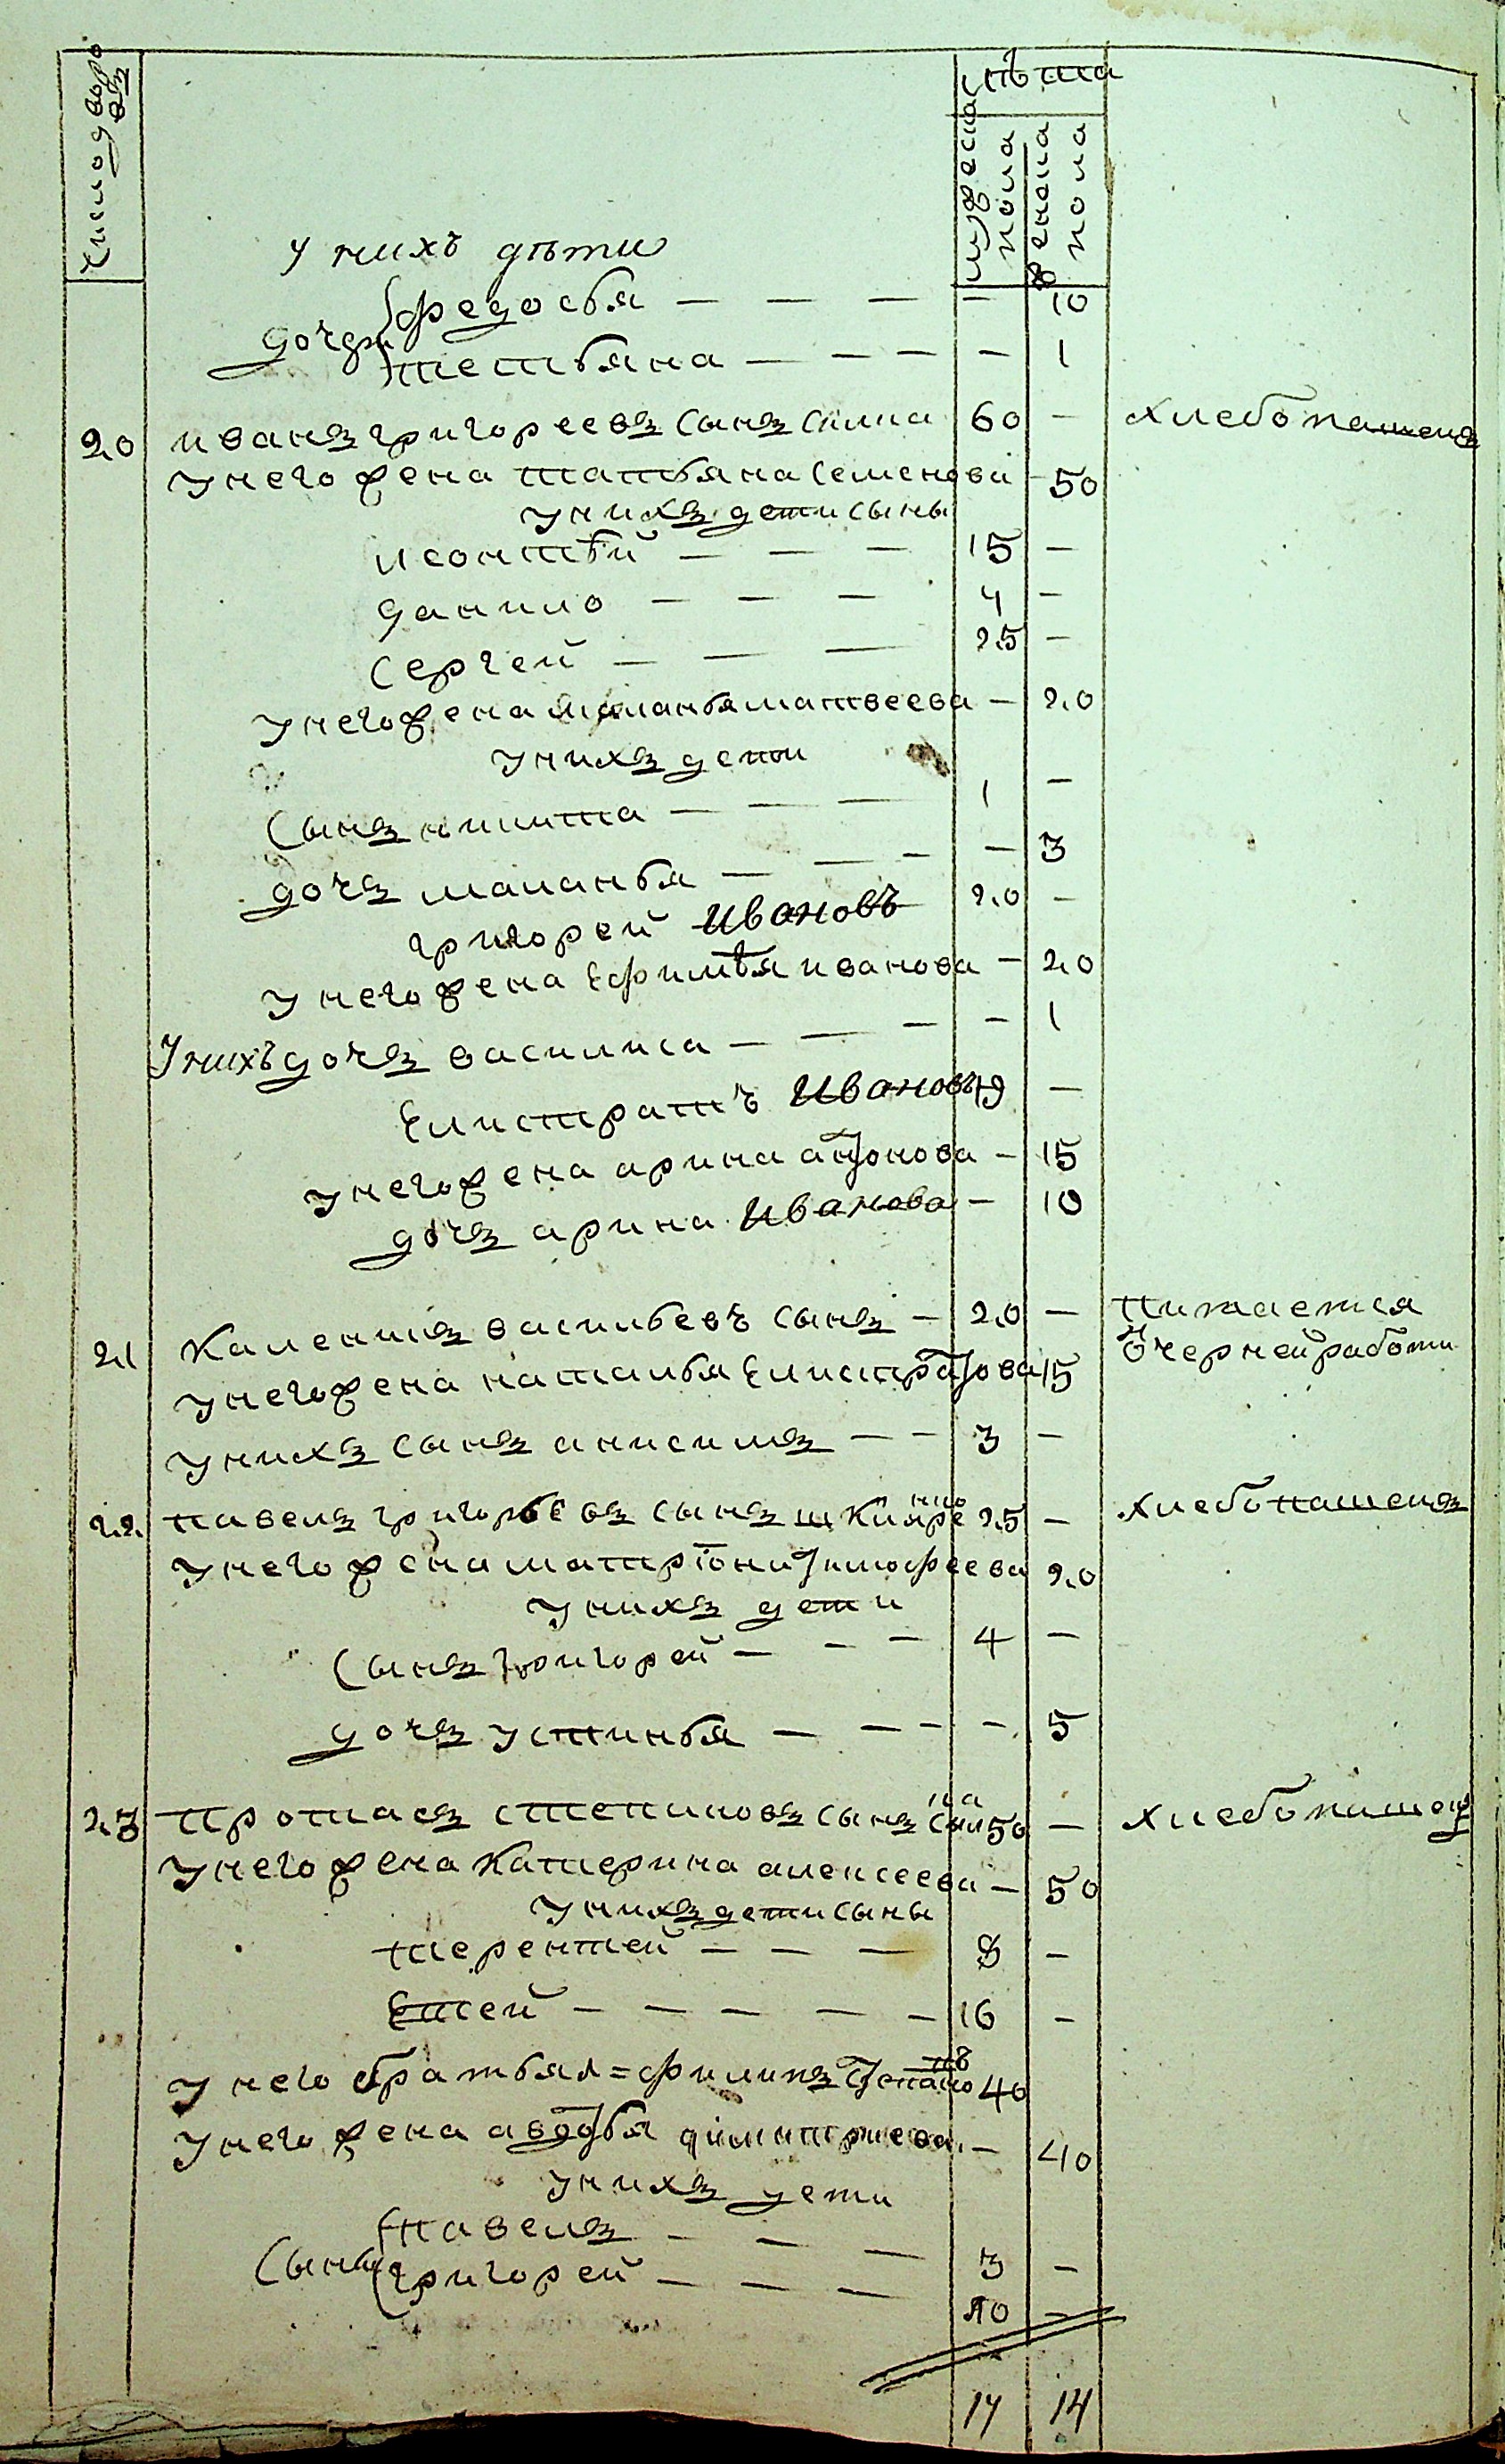 Число дворовъ
лѣта
мужеска пола
женска пола
У нихъ дѣти
дочери
федосья — — — — 10
тетьяна — — — — 1
20 иванъ григореевъ сынъ сила 60 — хлебопашецъ
У него жена татьяна семенова — 50
У нихъ дети сыны
леонтѣй — — — 15 —
данило — — — 4 —
Сергей — — — 25 —
У него жена маланья матвеева — 20
У нихъ дети
Сынъ никита — — — 1 —
дочъ маланья — — — — 3
григорей Ивановъ 20 —
У него жена Ефимѣя иванова — 20
У нихъ дочъ василиса — — — — 1
Елистратъ Ивановъ 19 —
У него жена арина антонова — 15
дочъ арина Иванова — 10
21 Каленикъ васильевъ сынъ — 20 — питается
У него жена наталья Елистратова 15 о черней работи
У нихъ сынъ анисимъ — — 3 —
22 павелъ григорьевъ сынъ шкиндренко 25 — хлебопашецъ
У него жена матрiона тимофеева 20
У нихъ дети
Сынъ григорей — — — 4 —
дочъ устинья — — — — 5
23 протасъ степановъ сынъ сила 50 — хлебопашецъ
У него жена катерина алексеева — 50
У нихъ дети сыны
терентей — — — 8 —
Евсей — — — — — 16 —
У него братья = филипъ степановъ 40
У него жена авдотья димитриева — 40
У нихъ дети
Сыны
павелъ — — — 3 —
григорей — — — 10 —
14 14